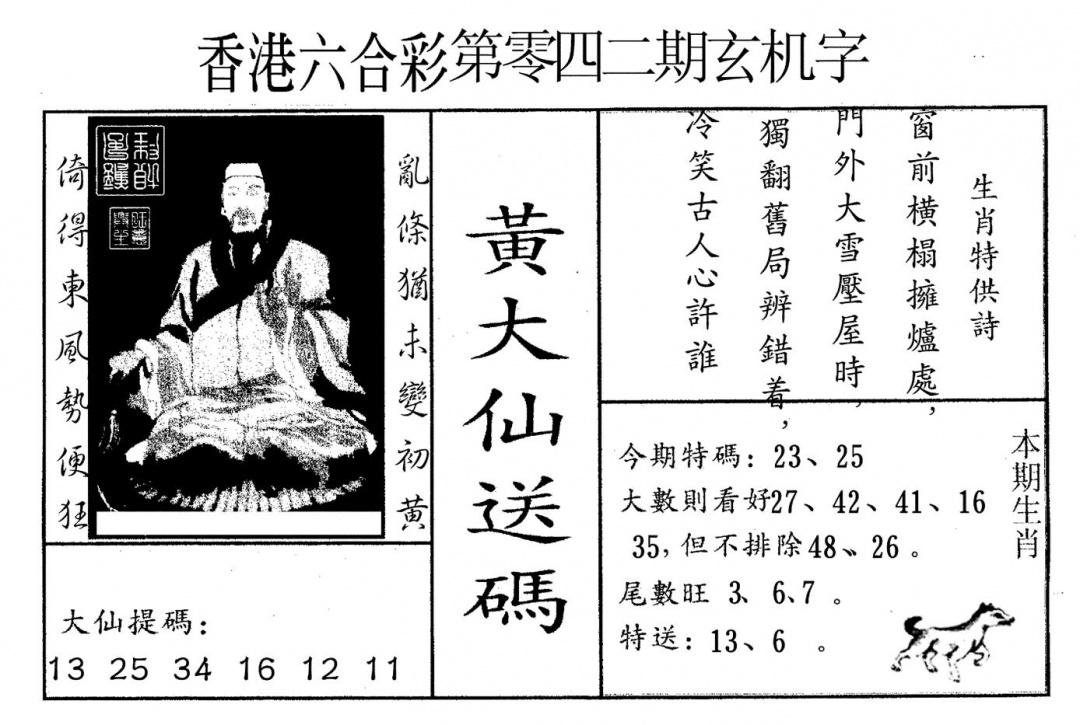 香港六合彩第零四二期玄机字
亂條猶未變初黃
倚得東風勢便狂
大仙提碼：
13 25 34 16 12 11
黃大仙送碼
生肖特供詩
窗前橫榻擁爐處，
門外大雪壓屋時，
獨翻舊局辨錯着，
冷笑古人心許誰
本期生肖
今期特碼：23、25
大數則看好27、42、41、16
35，但不排除48、26 。
尾數旺 3、6、7 。
特送：13、6 。